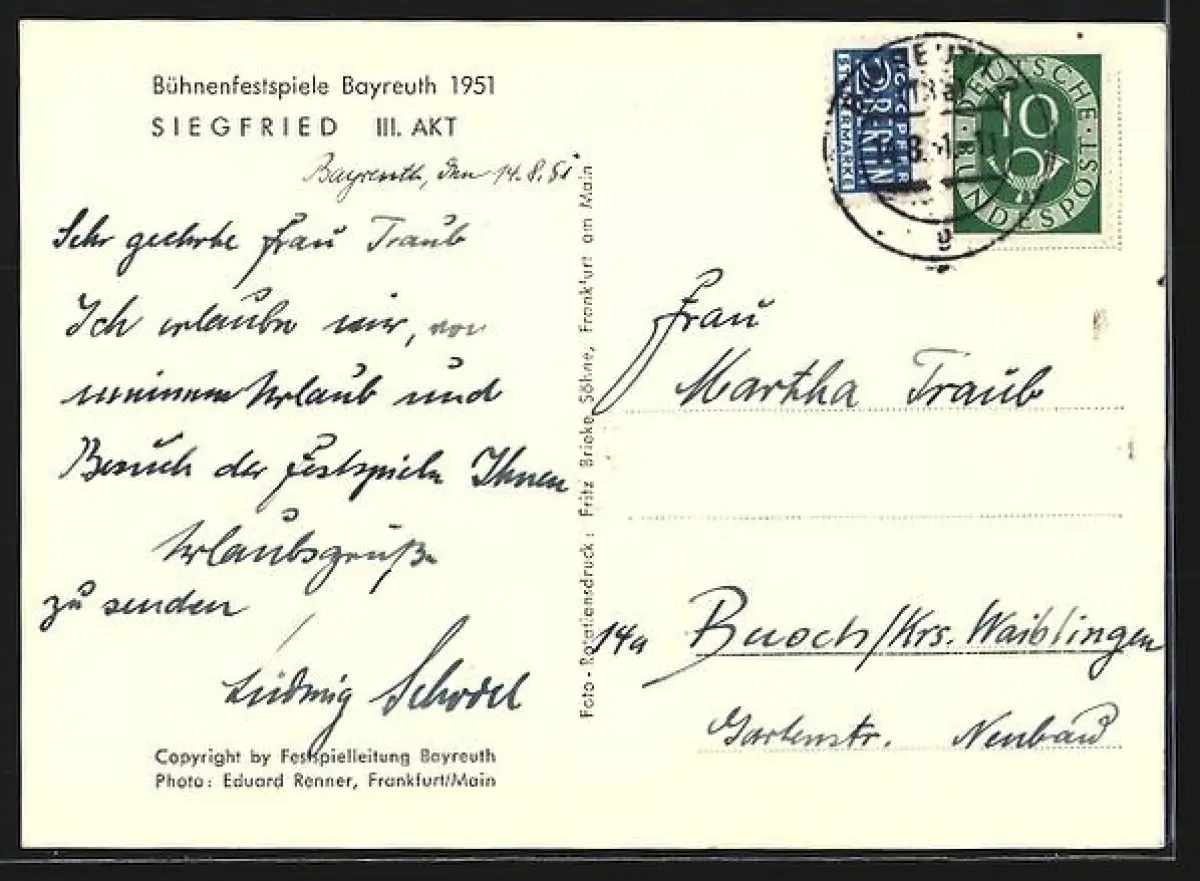 Bühnenfestspiele Bayreuth 1951
SIEGFRIED III. AKT
Bayreuth, den 14.8.51
Sehr geehrte Frau Traub
Ich erlaube mir, von
meinem Urlaub und
Besuch der Festspiele Ihnen
Urlaubsgrüße
zu senden
Ludwig Schodel
Copyright by Festspielleitung Bayreuth
Photo: Eduard Renner, Frankfurt/Main
Foto-Rotationsdruck: Fritz Brieke Söhne, Frankfurt am Main
NOTOPFER
2 BERLIN
STEUERMARKE
DEUTSCHE
BUNDESPOST
10
Frau
Martha Traub
14a Buoch/Krs. Waiblingen
Gartenstr. Neubau